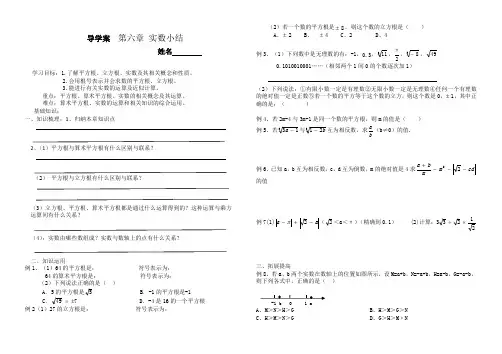 导学案 第六章 实数小结
姓名
学习目标：1.了解平方根、立方根、实数及其相关概念和性质。
2.会用根号表示并会求数的平方根、立方根。
3.能进行有关实数的运算及近似计算。
重点：平方根、算术平方根、实数的相关概念及其运算。
难点：算术平方根、实数的运算和相关知识的综合运用。
基础知识：
一、知识梳理：1、归纳本章知识点
2、（1）平方根与算术平方根有什么区别与联系？
（2） 平方根与立方根有什么区别与联系？
（3）立方根、平方根、算术平方根都是通过什么运算得到的？这种运算与乘方运算间有什么关系？
（4）：实数由哪些数组成？实数与数轴上的点有什么关系？
二、知识运用
例1、（1）64的平方根是： 符号表示为：
64的算术平方根是： 符号表示为：
（2）下列说法正确的是（ ）
A、5的平方根是√5 B、-1的平方根是-1
C、√49 = ±7 D、-4是16的一个平方根
例2（1）27的立方根是： 符号表示为：
（2）若一个数的平方根是±8，则这个数的立方根是（ ）
A、±2 B、 ±4 C、2 D、4
0.1010010001……（相邻两个1间0的个数逐次加1）
（2）下列说法：①有限小数一定是有理数②无限小数一定是无理数④任何一个有理数的绝对值一定是正数⑤若一个数的平方等于这个数的立方，则这个数是0，±1，其中正确的是：（ ）
例4、若2m-4与3m-1是同一个数的平方根，则m的值是（ ）
例6、已知a，b互为相反数，c，d互为倒数，m的绝对值是4求 (a + b)/m − m² − |√2 − cd|
的值
三、拓展提高
例8、若a、b两个实数在数轴上的位置如图所示，设M=a+b，N=-a+b，H=a-b，G=-a-b，则下列各式中，正确的是（ ）
-1 b 0 1 a
A、M＞N＞H＞G B、H＞M＞G＞N
C、H＞M＞N＞G D、G＞H＞M＞N